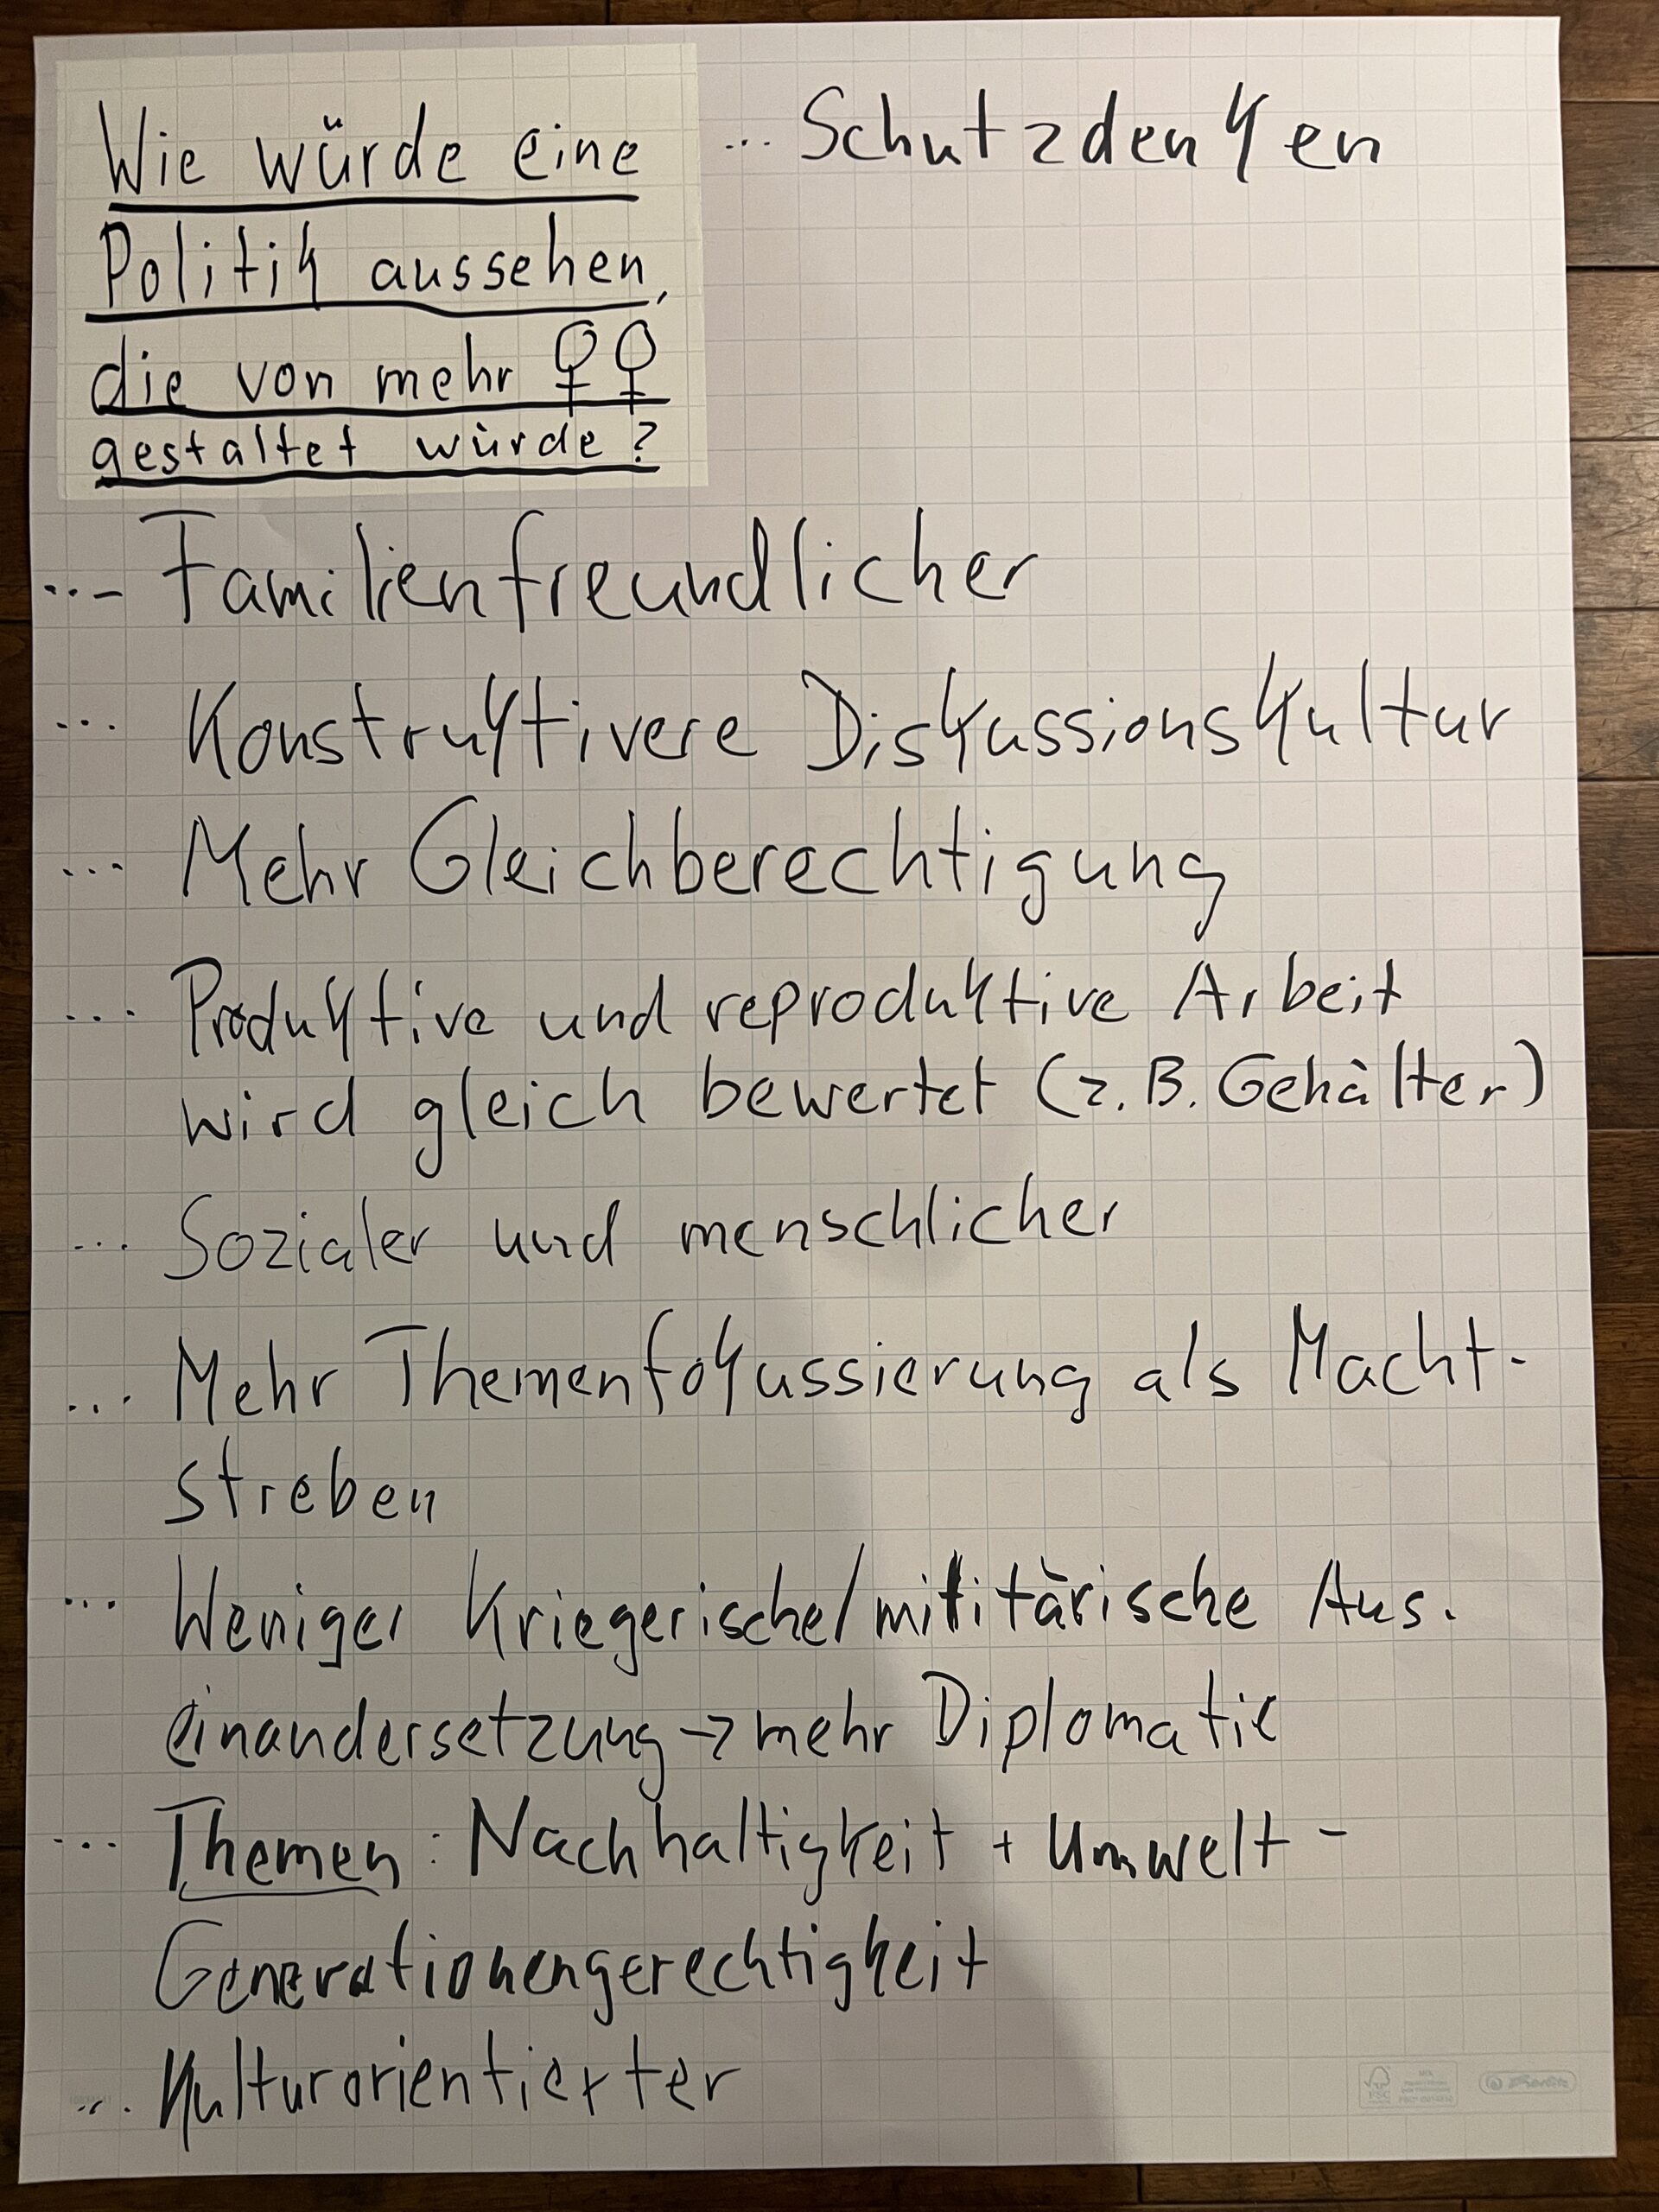 Wie würde eine
Politik aussehen,
die von mehr ♀♀
gestaltet würde?
... Schutzdenken
... Familienfreundlicher
... Konstruktivere Diskussionskultur
... Mehr Gleichberechtigung
... Produktive und reproduktive Arbeit
wird gleich bewertet (z.B. Gehälter)
... Sozialer und menschlicher
... Mehr Themenfokussierung als Macht-
streben
... Weniger Kriegerische/militärische Aus-
einandersetzung → mehr Diplomatie
... Themen: Nachhaltigkeit + Umwelt -
Generationengerechtigkeit
... Kulturorientierter